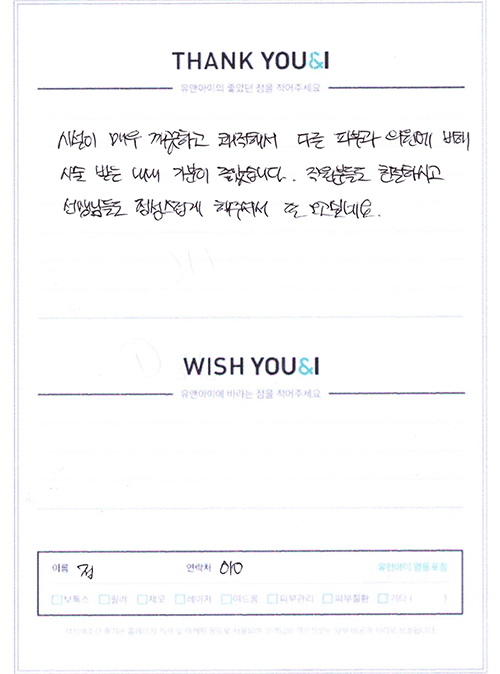 THANK YOU&I
유앤아이의 좋았던 점을 적어주세요
시설이 매우 깨끗하고 쾌적해서 다른 피부과 의원에 비해
시술 받는 내내 기분이 좋았습니다. 직원분들도 친절하시고
선생님들도 정성스럽게 해주셔서 또 오고싶네요.
WISH YOU&I
유앤아이에 바라는 점을 적어주세요
이름 정 연락처 010 유앤아이 영등포점
보톡스 필러 제모 레이저 여드름 피부관리 피부질환 기타 ( )